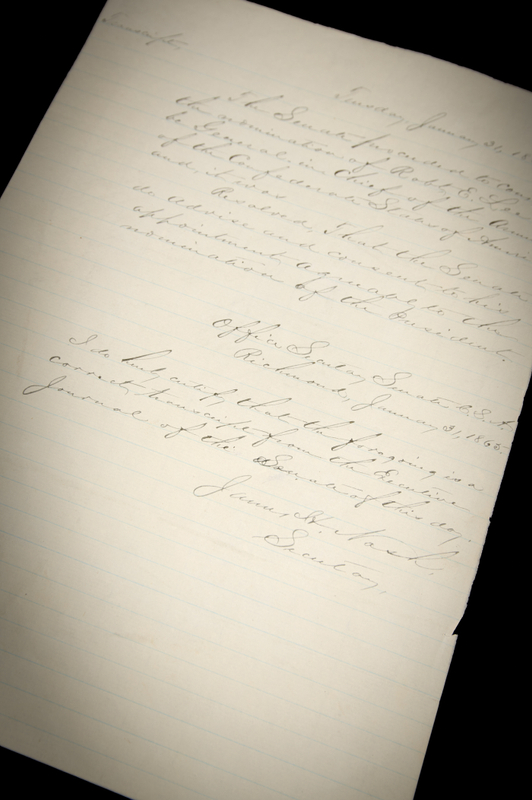 Transcript,
Tuesday, January 31, 18
The Senate proceeded to con
the nomination of Robt. E. Lee
be General in Chief of the Armi
of the Confederate States of Ameri
and it was
Resolved, That the Senate
do advise and consent to his
appointment agreeable to the
nomination of the President.
Office Secretary Senate C. S. A.
Richmond, January 31, 1865.
I do hereby certify that the foregoing is a
correct transcript from the Executive
Journal of the Senate of this day.
James H. Nash,
Secretary.